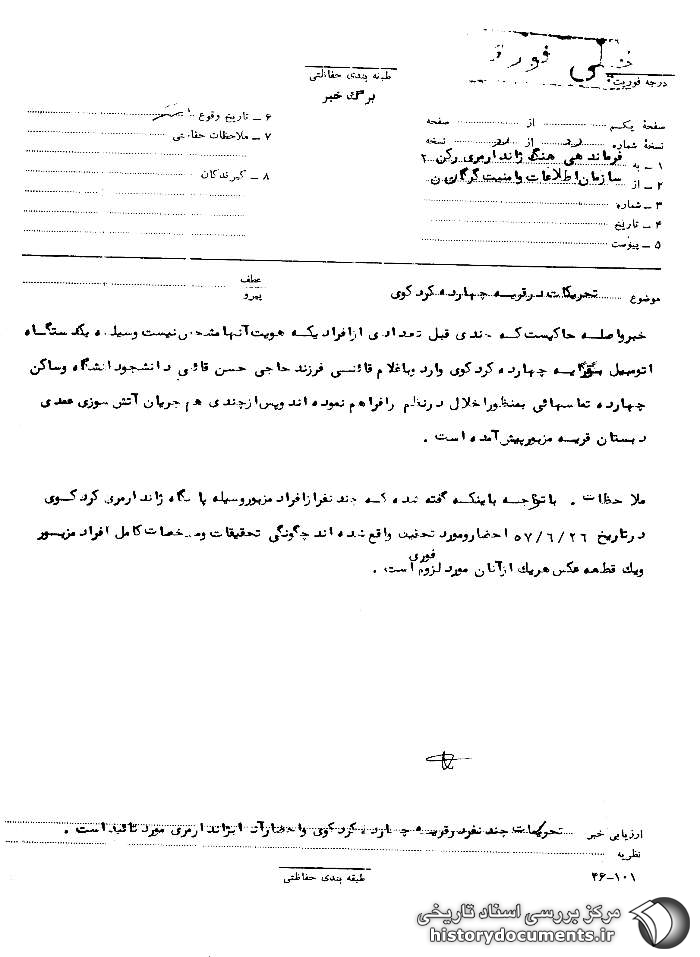 خیلی فوری
درجه فوریت:
طبقه بندی حفاظتی
برگ خبر
صفحهٔ یکم از صفحه
نسخهٔ شماره از نسخه
۱ ـ به فرماندهی هنگ ژاندارمری رکن ۲
۲ ـ از سازمان اطلاعات وامنیت گرگان
۳ ـ شماره
۴ ـ تاریخ
۵ ـ پیوست
۶ ـ تاریخ وقوع
۷ ـ ملاحظات حفاظتی
۸ ـ گیرندگان
موضوع تحریکات درقریه چهارده کردکوی
عطف
پیرو
خبرواصله حاکیست که چندی قبل تعدادی ازافرادیکه هویت آنهامشخص نیست وسیله یکدستگاه
اتومبیل بقریه چهارده کردکوی وارد وباغلام قائمی فرزند حاجی حسن قائمی دانشجودانشگاه وساکن
چهارده تماسهائی بمنظوراخلال درنظم رافراهم نموده اند وپس ازچندی هم جریان آتش سوزی عمدی
دبستان قریه مزبورپیش آمده است .
ملاحظات . باتوجه باینکه گفته شده که چند نفرازافراد مزبوروسیله پاسگاه ژاندارمری کردکوی
درتاریخ ۵۷/۶/۲۶ احضارومورد تحقیق واقع شده اند چگونگی تحقیقات ومشخصات کامل افراد مزبور
ویک قطعه عکس هریک ازآنان مورد لزوم فوری است .
ارزیابی خبر تحریکات چند نفردرقریه چهارده کردکوی واحضارآنها بژاندارمری مورد تائید است .
نظریه
طبقه بندی حفاظتی
۴۶-۱۰۱
مرکز بررسی اسناد تاریخی
historydocuments.ir